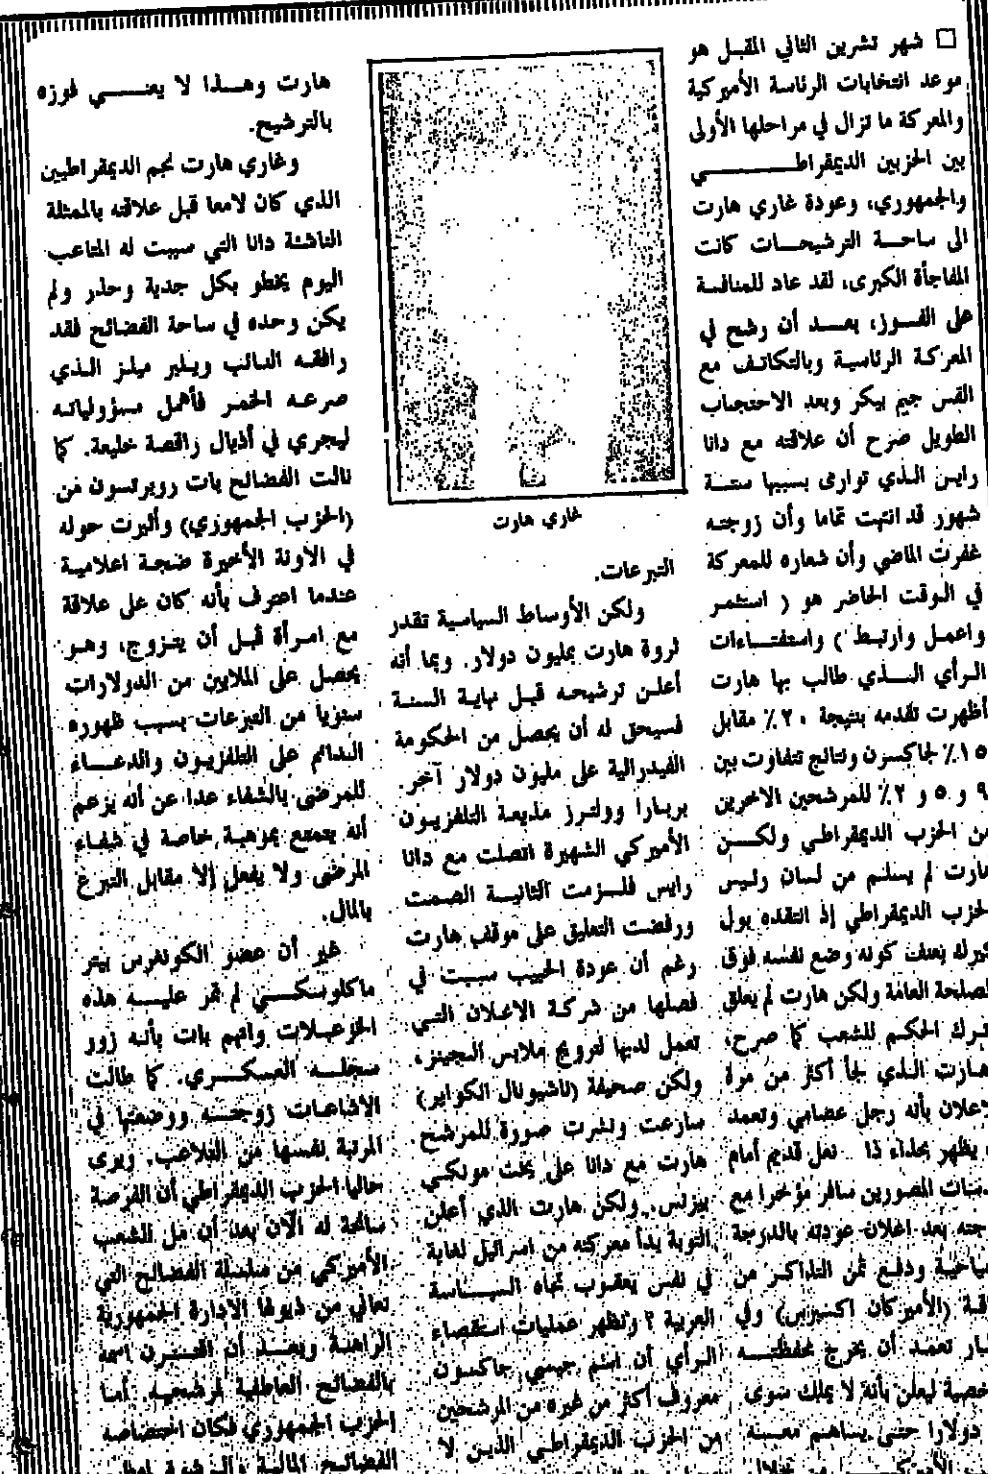 □ شهر تشرين الثاني المقبل هو
موعد انتخابات الرئاسة الأميركية
والمعركة ما تزال في مراحلها الأولى
بين الحزبين الديمقراطي
والجمهوري، وعودة غاري هارت
الى ساحة الترشيحات كانت
المفاجأة الكبرى، لقد عاد للمنافسة
على الفوز، بعد أن رشح في
المعركة الرئاسية وبالتكاتف مع
القس جيم بيكر وبعد الاحتجاب
الطويل صرح أن علاقته مع دانا
رايس الذي توارى بسببها ستة
شهور قد انتهت تماما وأن زوجته
غفرت الماضي وأن شعاره للمعركة
في الوقت الحاضر هو ( استثمر
واعمل وارتبط ) واستفتاءات
الرأي الذي طالب بها هارت
أظهرت تقدمه بنتيجة ٢٠٪ مقابل
١٥٪ لجاكسون ونتائج تتفاوت بين
٩ و ٥ و ٢٪ للمرشحين الاخرين
من الحزب الديمقراطي ولكن
هارت لم يسلم من لسان رئيس
الحزب الديمقراطي إذ انتقده بول
كيرك بعنف كونه وضع نفسه فوق
المصلحة العامة ولكن هارت لم يعلق
الحكم للشعب كما صرح،
الذي لجأ أكثر من مرة
بأنه رجل عصامي وتعمد
يظهر بحذاء ذا نعل قديم أمام
المصورين سافر مؤخرا مع
بعد اعلان عودته بالدرجة
ودفع ثمن التذاكر من
(الأميركان اكسبرس) وفي
تعمد أن يخرج محفظته
ليعلن بأنه لا يملك سوى
دولارا حتى يساهم معه
غاري هارت
التبرعات.
ولكن الأوساط السياسية تقدر
ثروة هارت بمليون دولار. وبما أنه
أعلن ترشيحه قبل نهاية السنة
فسيحق له أن يحصل من الحكومة
الفيدرالية على مليون دولار آخر.
بربارا وولترز مذيعة التلفزيون
الأميركي الشهيرة اتصلت مع دانا
رايس فلزمت الثانية الصمت
ورفضت التعليق على موقف هارت
رغم أن عودة الحبيب سببت في
فصلها من شركة الاعلان التي
تعمل لديها لترويج ملابس الجينز،
ولكن صحيفة (ناشيونال الكواير)
سارعت ونشرت صورة للمرشح
هارت مع دانا على يخت مونكي
بيزنس. ولكن هارت الذي أعلن
التوبة بدأ معركته من اسرائيل لغاية
في نفس يعقوب تجاه السياسة
العربية ؟ وتظهر عمليات استقصاء
الرأي أن اسم جيسي جاكسون
معروف أكثر من غيره من المرشحين
من الحزب الديمقراطي الذين لا
هارت وهذا لا يعني فوزه
بالترشيح.
وغاري هارت نجم الديمقراطيين
الذي كان لامعا قبل علاقته بالممثلة
الناشئة دانا التي سببت له المتاعب
اليوم يخطو بكل جدية وحذر ولم
يكن وحده في ساحة الفضائح فقد
رافقه النائب ويلبر ميلز الذي
صرعه الخمر فأهمل مسؤولياته
ليجري في أذيال راقصة خليعة. كما
نالت الفضائح بات روبرتسون من
(الحزب الجمهوري) وأثيرت حوله
في الاونة الأخيرة ضجة اعلامية
عندما اعترف بأنه كان على علاقة
مع امرأة قبل أن يتزوج، وهو
يحصل على الملايين من الدولارات
سنويا من التبرعات بسبب ظهوره
الدائم على التلفزيون والدعاء
للمرضى بالشفاء عدا عن أنه يزعم
أنه يتمتع بموهبة خاصة في شفاء
المرضى ولا يفعل إلا مقابل التبرع
بالمال.
غير أن عضو الكونغرس بيتر
ماكلوسكي لم تمر عليه هذه
الخزعبلات واتهم بات بأنه زور
سجله العسكري. كما طالت
الاشاعات زوجته ووضعتها في
المرتبة نفسها من التلاعب. ويرى
حاليا الحزب الديمقراطي أن الفرصة
سانحة له الآن بعد أن مل الشعب
الأميركي من سلسلة الفضائح التي
تعاني من ذيولها الادارة الجمهورية
الراهنة وبعد أن اقترن اسمه
بالفضائح العاطفية لمرشحيه. أما
الحزب الجمهوري فكان اختصاصه
الفضائح المالية